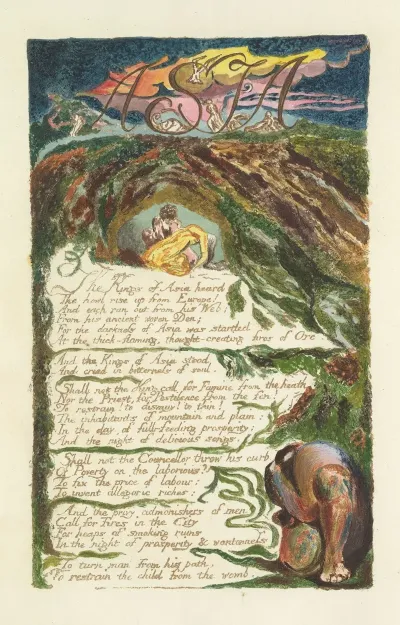 ASIA
The Kings of Asia heard
The howl rise up from Europe!
And each ran out from his Web;
From his ancient woven Den;
For the darkness of Asia was startled
At the thick-flaming, thought-creating fires of Orc.
And the Kings of Asia stood
And cried in bitterness of soul.
Shall not the King call for Famine from the heath
Nor the Priest, for Pestilence from the fen
To restrain! to dismay! to thin!
The inhabitants of mountain and plain;
In the day, of full-feeding prosperity;
And the night of delicious songs.
Shall not the Councellor throw his curb
Of Poverty on the laborious?
To fix the price of labour;
To invent allegoric riches:
And the privy admonishers of men
Call for Fires in the City
For heaps of smoking ruins,
In the night of prosperity & wantonness
To turn man from his path,
To restrain the child from the womb,